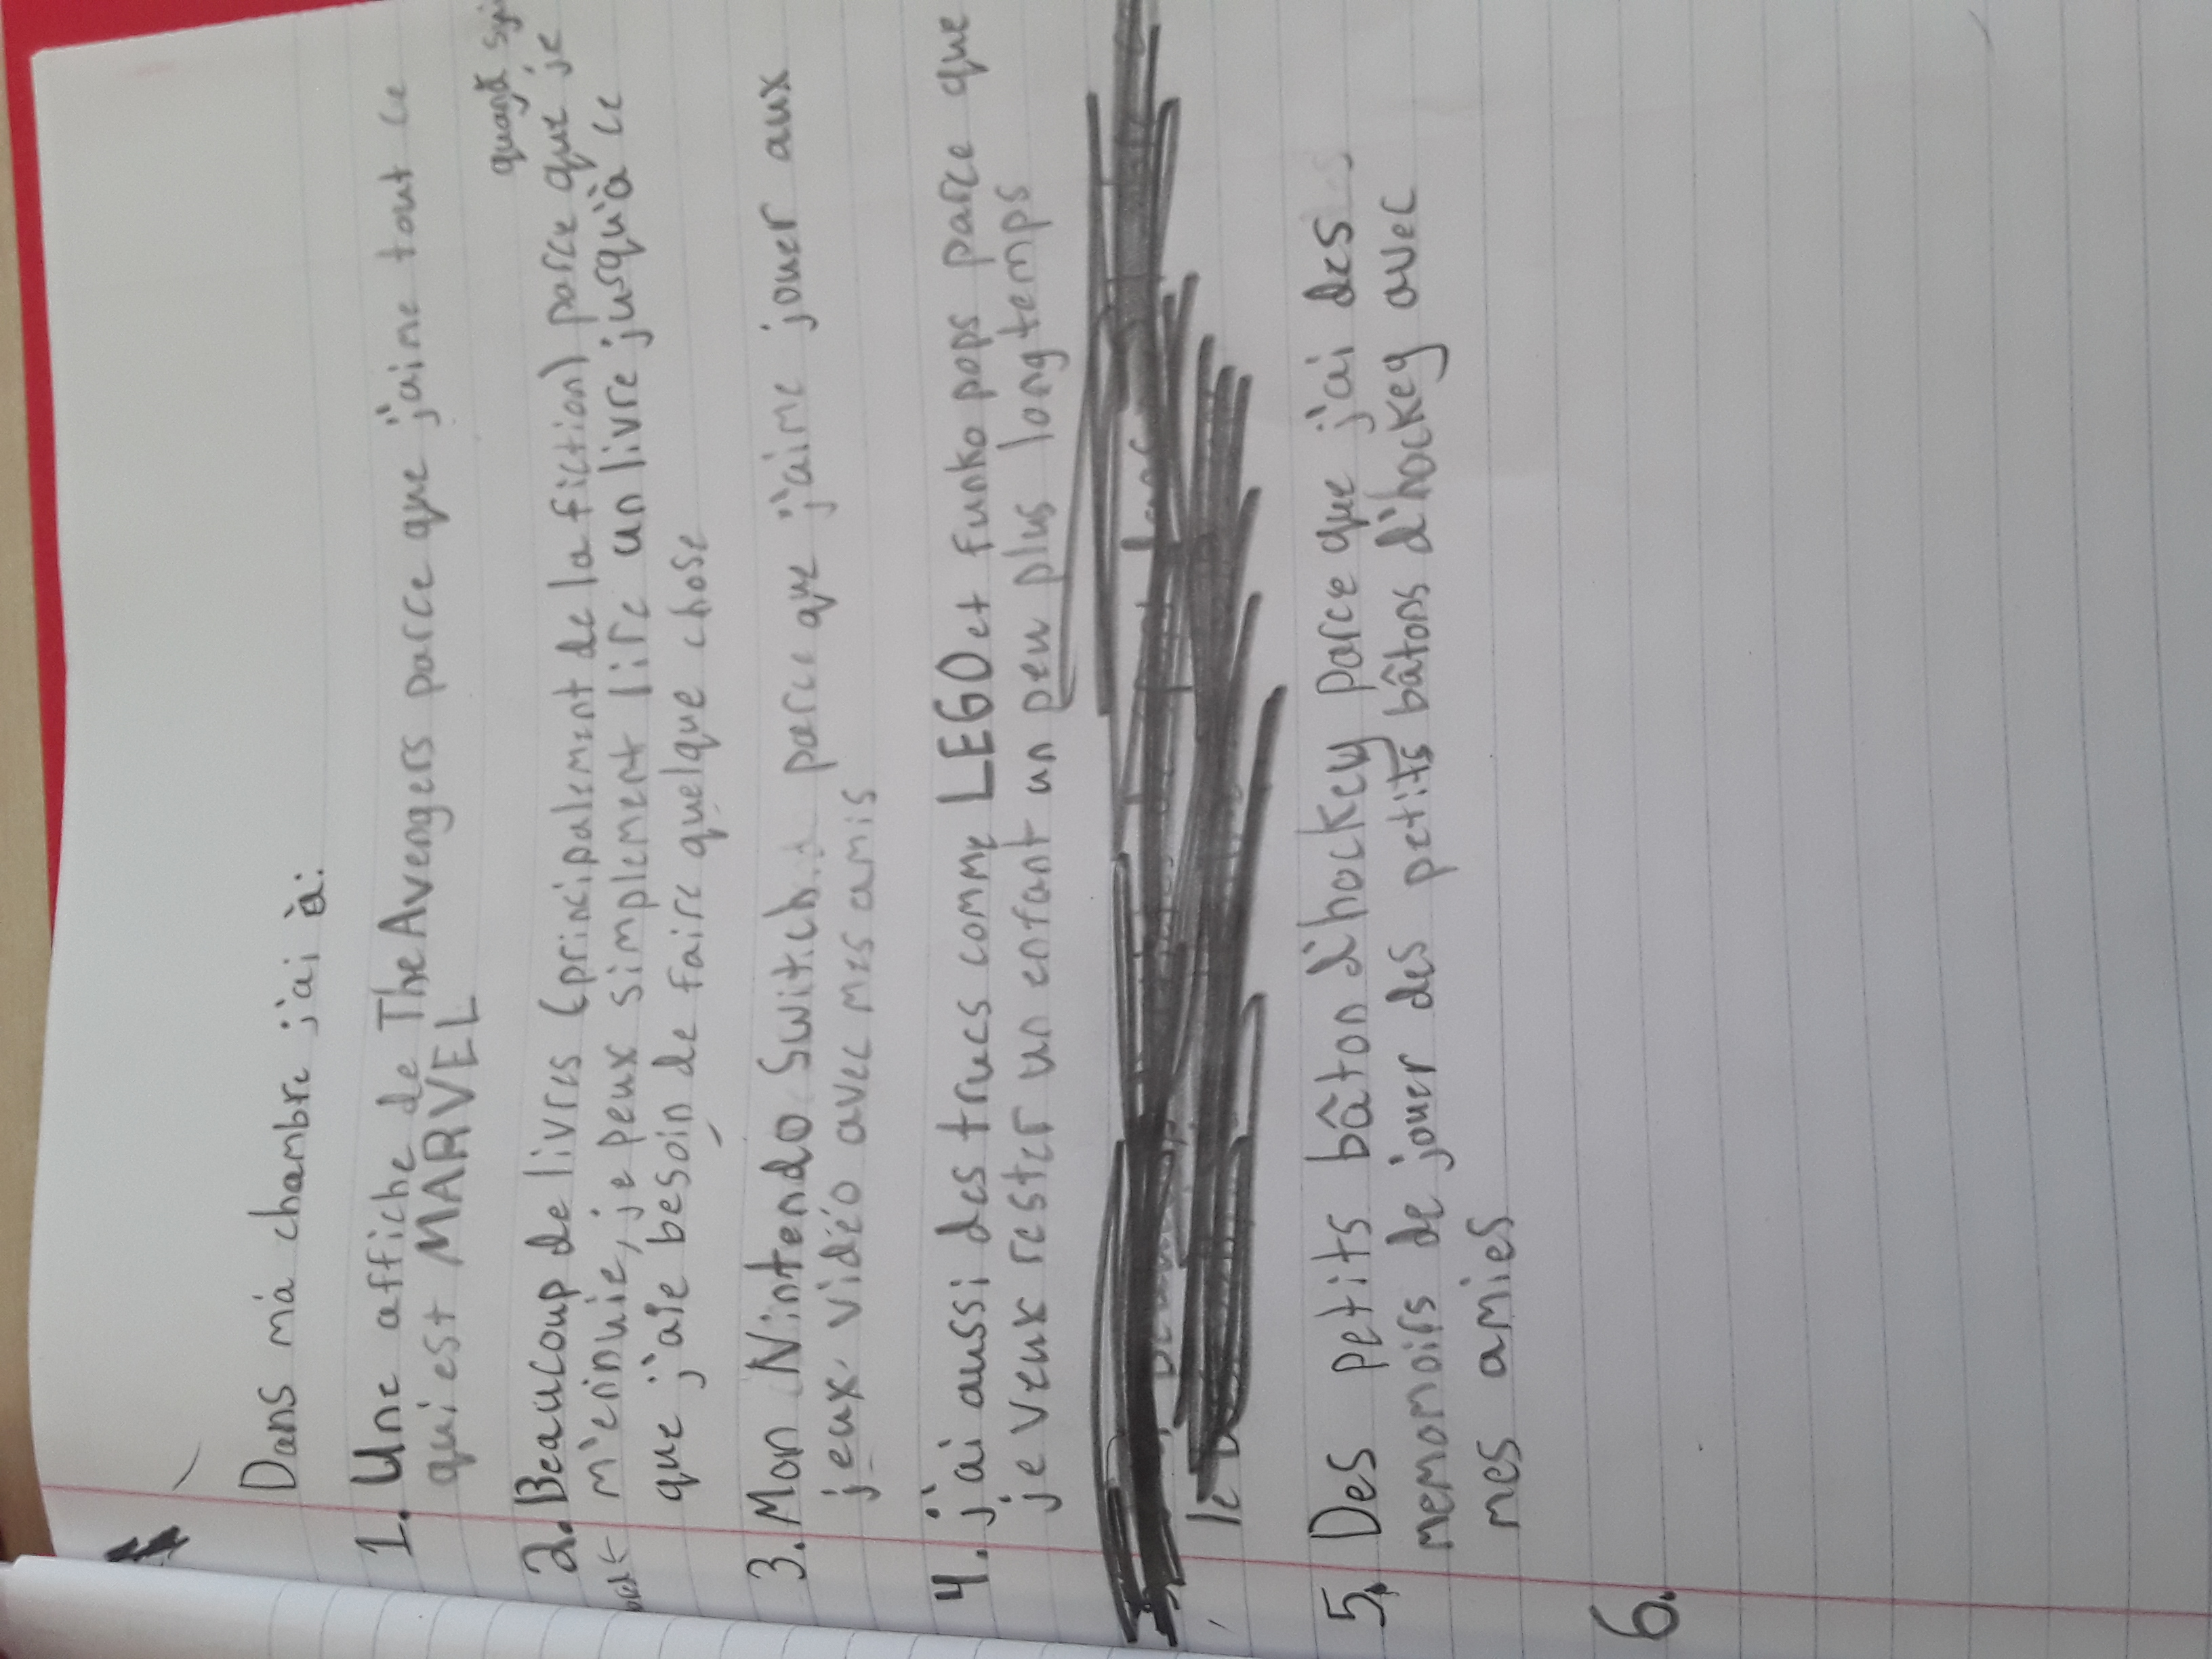 Dans ma chambre j'ai à:
1. Une affiche de The Avengers parce que j'aime tout ce
qui est MARVEL
quand
2. Beaucoup de livres (principalement de la fiction) parce que je
m'ennuie, je peux simplement lire un livre jusqu'à ce
que j'aie besoin de faire quelque chose
3. Mon Nintendo Switch parce que j'aime jouer aux
jeux vidéo avec mes amis
4. j'ai aussi des trucs comme LEGO et Funko pops parce que
je veux rester un enfant un peu plus longtemps
le
5. Des petits bâton d'hockey parce que j'ai des
memomoirs de jouer des petits bâtons d'hockey avec
mes amies
6.